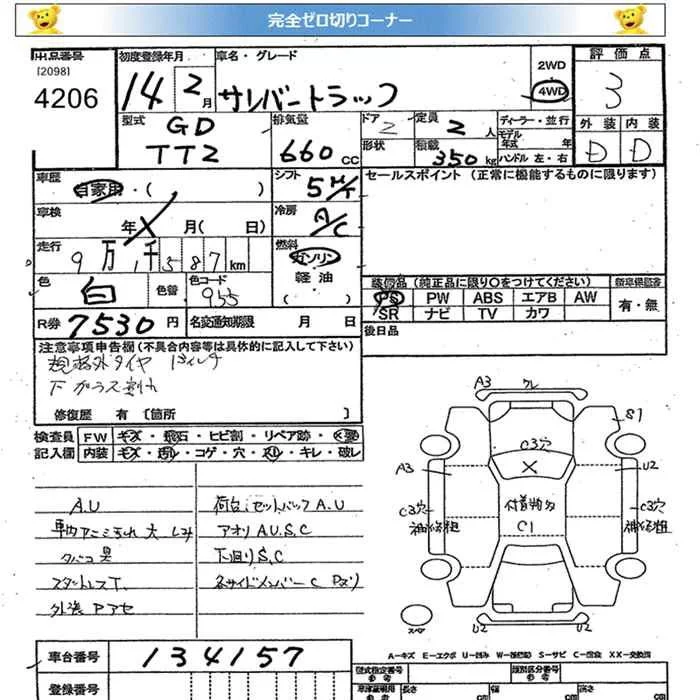 完全ゼロ切りコーナー
出品番号 初度登録年月 車名・グレード 評価点
[2098]
4206 14年 2月 サンバートラック 2WD 4WD 3
型式 GD TT2 排気量 660cc ドア 2 定員 2人 ディーラー・並行 外装 内装
形状 積載 350kg モデル年式 年 ハンドル 左・右 D D
車歴 自家用・( ) シフト 5M/T セールスポイント (正常に機能するものに限ります)
車検 年 X 月( 日) 冷房 A/C
走行 9万1千587km 燃料 ガソリン 軽油
色 白 色替 色コード 955 装備品(純正品に限り○をつけてください) 新車保証書
PS PW ABS エアB AW 有・無
R券 7530円 名変通知期限 月 日 SR ナビ TV カワ
後日品
注意事項申告欄(不具合内容等は具体的に記入して下さい)
規格外タイヤ 13インチ
下ガラス割れ
修復歴 有 〔箇所 〕
検査員 FW キズ・飛石・ヒビ割・リペア跡・
記入欄 内装 キズ・汚れ・コゲ・穴・スレ・キレ・破レ
A3 フレ
S1
C3穴
X
A3 U2
C3穴 付着物多 C3穴
補修粗 C1 補修粗
スペア U2 U2
A.U 荷台セットバックA.U
車内 大 シミ アオリA.U.S.C
タバコ臭 下廻りS.C
スタットレスT. 各サイドメンバーC Pヌリ
外装Pアセ
A－キズ E－エクボ U－凹み W－補修跡 S－サビ C－腐食 XX－交換済
車台番号 134157
型式指定番号 類別区分番号
登録番号 長さ 幅 高さ